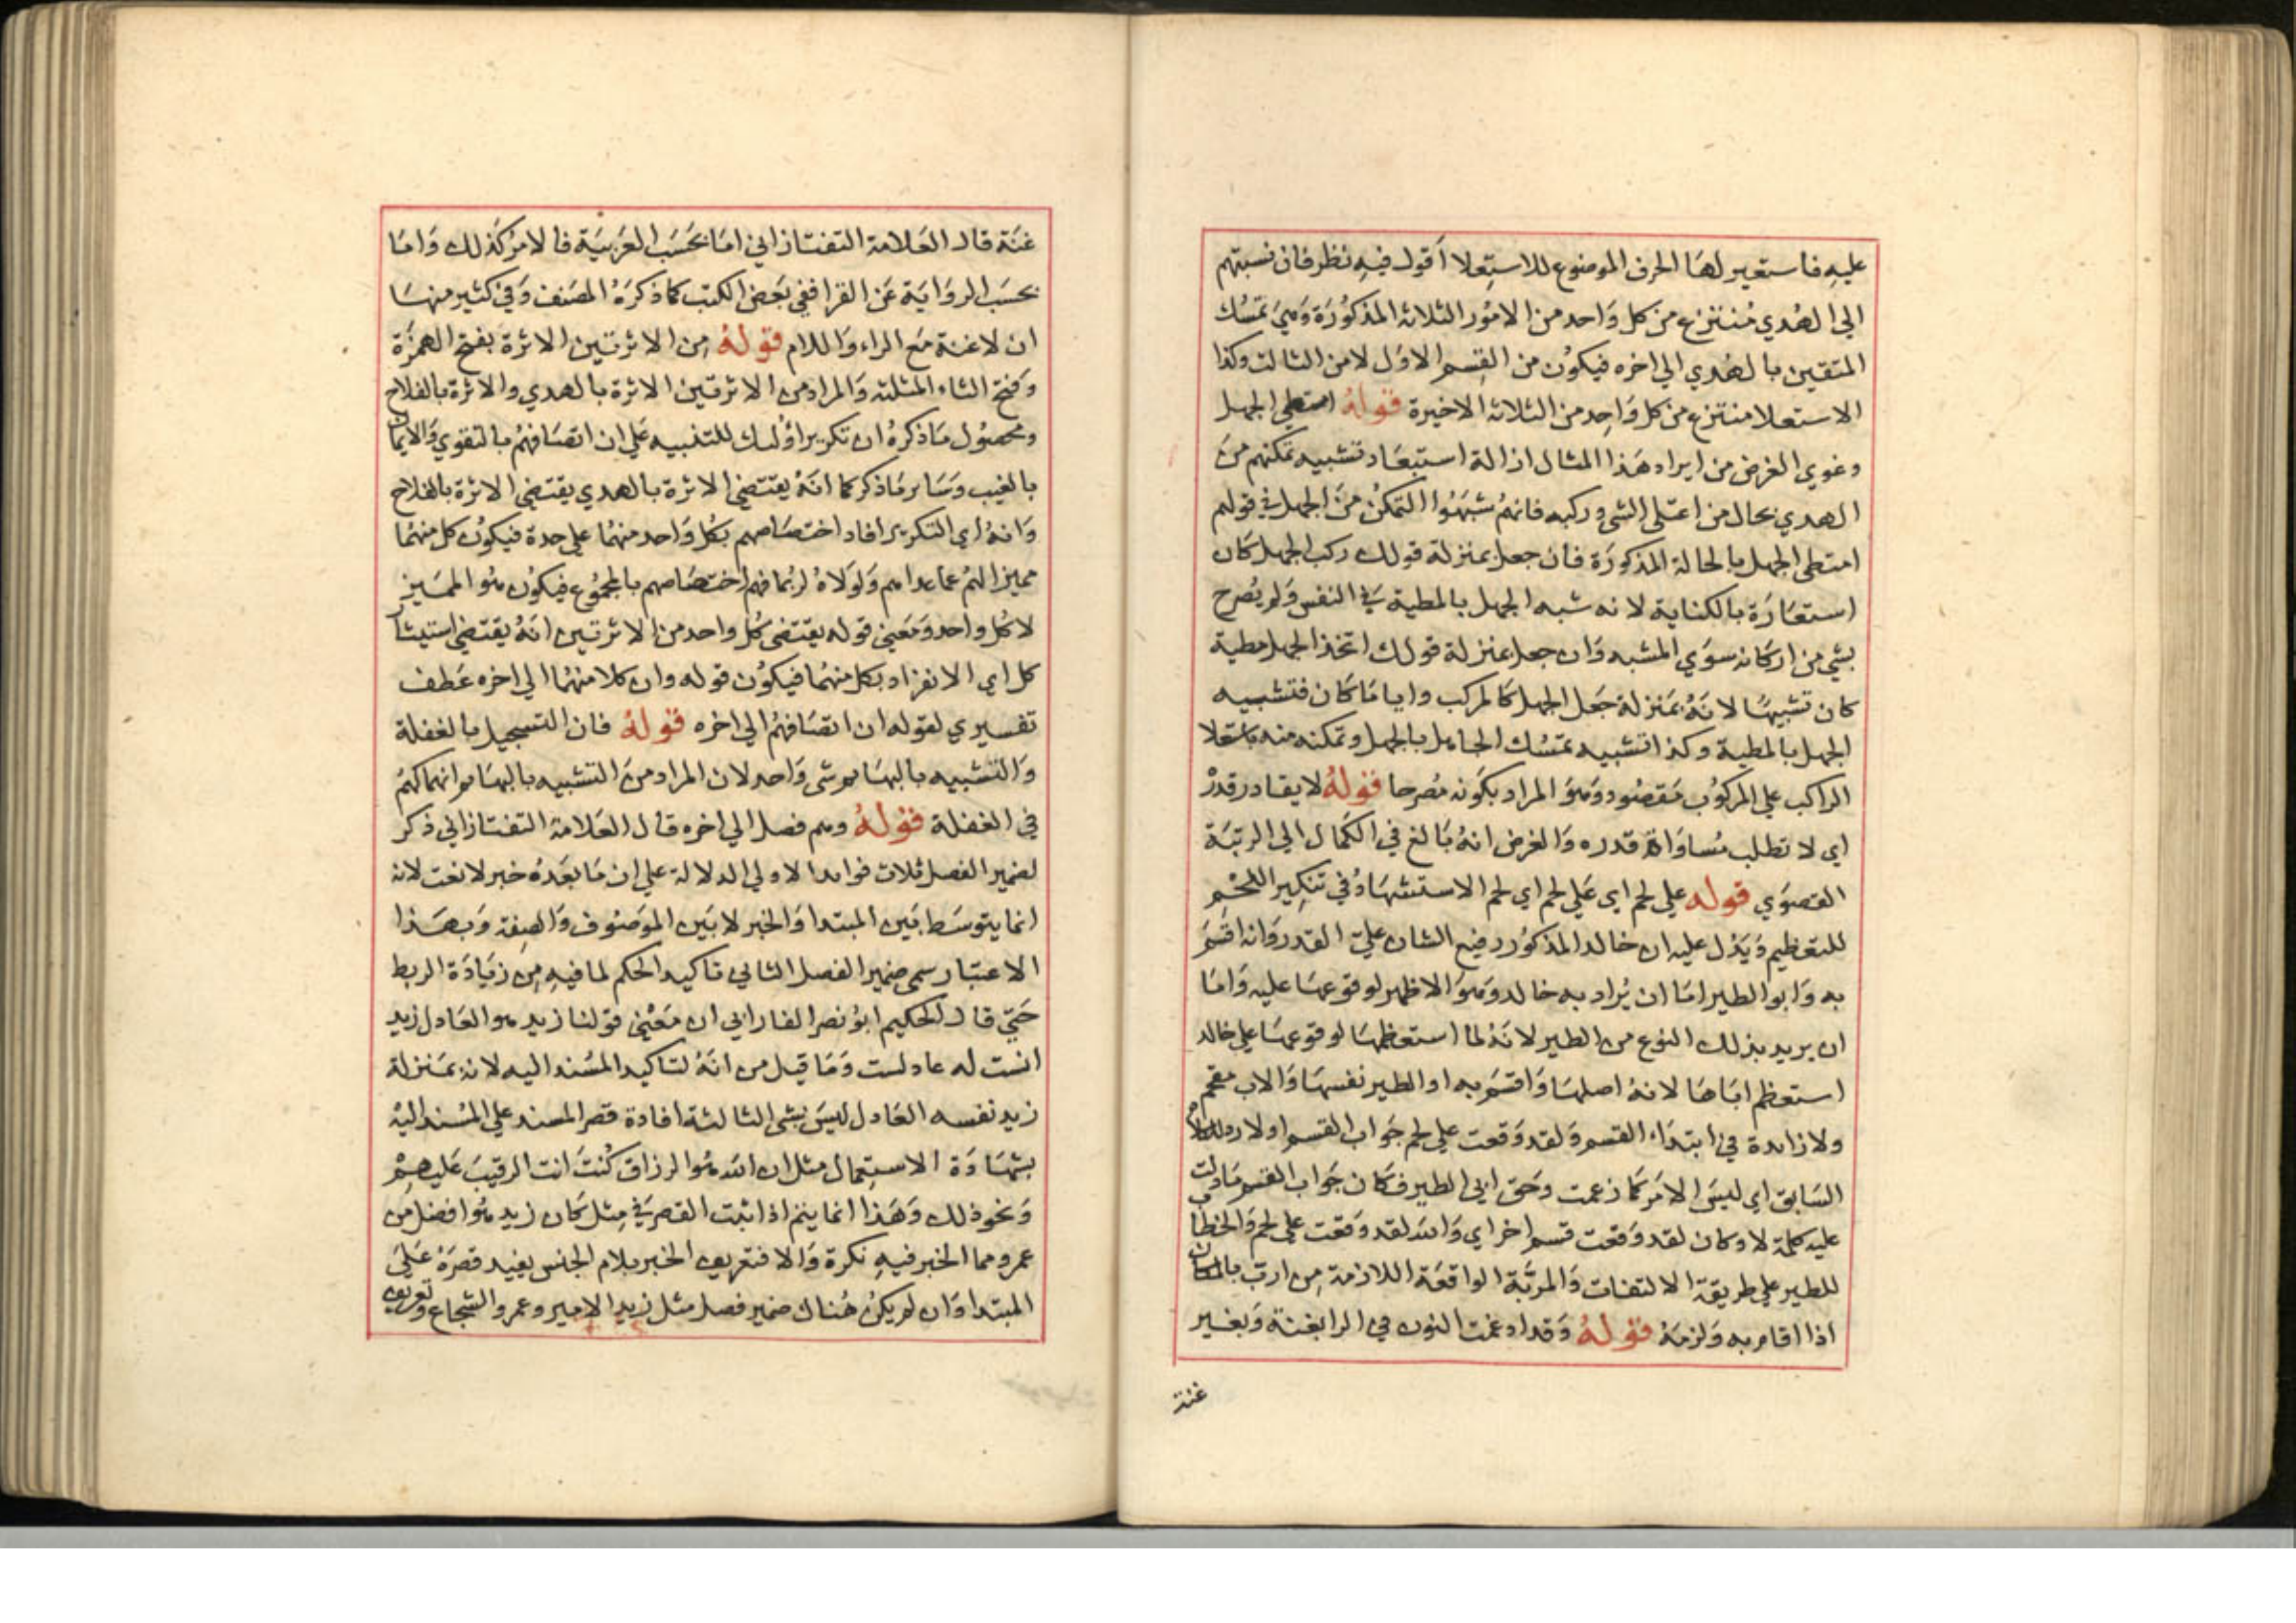 عليه فاستعير لها الحرف الموضوع للاستعلا أقول فيه نظر فان نسبتهم
الي الهدي منتزع من كل واحد من الامور الثلاثة المذكورة وهي تمسك
المتقين بالهدي الي اخره فيكون من القسم الاول لا من الثالث وكذا
الاستعلا منتزع من كل واحد من الثلاثة الاخيرة قوله امتطي الجهل
وغوي الغرض من ايراد هذا المثال ازالة استبعاد تشبيه تمكنهم من
الهدي بحال من اعتلي الشي وركبه فانهم شبهوا التمكن من الجهل في قولهم
امتطي الجهل بالحالة المذكورة فان جعل بمنزلة قولك ركب الجهل كان
استعارة بالكناية لانه شبه الجهل بالمطية في النفس ولم يصرح
بشي من اركانه سوي المشبه وان جعل بمنزلة قولك اتخذ الجهل مطية
كان تشبيها لانه بمنزلة جعل الجهل كالمركب وايا ما كان فتشبيه
الجهل بالمطية وكذا تشبيه تمسك الجاهل بالجهل وتمكنه منه باستعلا
الراكب علي المركوب مقصود وهو المراد بكونه مصرحا قوله لا يقادر قدر
اي لا تطلب مساواة قدره والغرض انه بالغ في الكمال الي الرتبة
القصوي قوله علي لحم اي علي لحم اي لحم الاستشهاد في تنكير اللحم
للتعظيم ويدل عليه ان خالد المذكور رفيع الشان علي القدر وانه اقسم
به وابو الطير اما ان يراد به خالد وهو الاظهر لوقوعها عليه واما
ان يريد بذلك النوع من الطير لانه لما استعظمها لوقوعها علي خالد
استعظم اباها لانه اصلها واقسم به او الطير نفسها والاب مقحم
ولا زائدة في ابتداء القسم ولقد وقعت علي لحم جواب القسم اولا رد للكلام
السابق اي ليس الامر كما زعمت وحق ابي الطير فكان جواب القسم ما دلت
عليه كلمة لا وكان لقد وقعت قسم اخر اي والله لقد وقعت علي لحم والخطاب
للطير علي طريقة الالتفات والمربة الواقعة اللازمة من ارب بالمكان
اذا اقام به ولزمه قوله وقد ادغمت النون في الرا بغنة وبغير
غنة
غنة قال العلامة التفتازاني اما بحسب العربية فالامر كذلك واما
بحسب الرواية عن القرا ففي بعض الكتب كما ذكره المصنف وفي كثير منها
ان لا غنة مع الراء واللام قوله من الاثرتين الاثرة بفتح الهمزة
وفتح الثاء المثلثة والمراد من الاثرتين الاثرة بالهدي والاثرة بالفلاح
ومحصول ما ذكره ان تكرير اولئك للتنبيه علي ان اتصافهم بالتقوي والايمان
بالغيب وساير ما ذكر كما انه يقتضي الاثرة بالهدي يقتضي الاثرة بالفلاح
وانه اي التكرير افاد اختصاصهم بكل واحد منهما علي حدة فيكون كل منهما
مميزا لهم عما عداهم ولولاه لربما فهم اختصاصهم بالمجموع فيكون هو المميز
لا كل واحد ومعني قوله يقتضي كل واحد من الاثرتين انه يقتضي استيثار
كل اي الانفراد بكل منهما فيكون قوله وان كلا منهما الي اخره عطف
تفسيري لقوله ان اتصافهم الي اخره قوله فان التسجيل بالغفلة
والتشبيه بالبهايم شي واحد لان المراد من التشبيه بالبهايم انهماكهم
في الغفلة قوله وهم فصل الي اخره قال العلامة التفتازاني ذكر
لضمير الفصل ثلاث فوايد الاولي الدلالة علي ان ما بعده خبر لا نعت لانه
انما يتوسط بين المبتدا والخبر لا بين الموصوف والصفة وبهذا
الاعتبار سمي ضمير الفصل الثاني تاكيد الحكم لما فيه من زيادة الربط
حتي قال الحكيم ابو نصر الفارابي ان معني قولنا زيد هو العادل زيد
انست له عادلست وما قيل من انه لتاكيد المسند اليه لانه بمنزلة
زيد نفسه العادل ليس بشي الثالثة افادة قصر المسند علي المسند اليه
بشهادة الاستعمال مثل ان الله هو الرزاق كنت انت الرقيب عليهم
ونحو ذلك وهذا انما يتم اذا ثبت القصر في مثل كان زيد هو افضل من
عمرو مما الخبر فيه نكرة والا فتعريف الخبر بلام الجنس يفيد قصره علي
المبتدا وان لم يكن هناك ضمير فصل مثل زيد الامير وعمرو الشجاع وتعريف